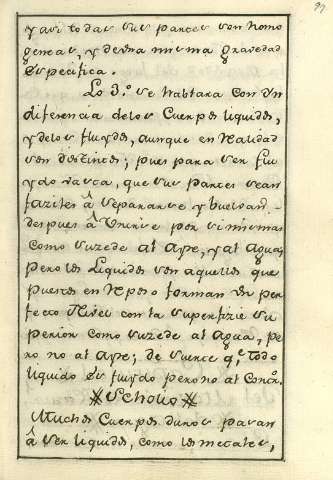 99
y assi todas sus partes son homo
geneas, y de una misma gravedad
especifica.
Lo 3.º se hablara con in
diferencia de los Cuerpos liquidos,
y de los fluydos, aunque en Realidad
son distintos; pues para ser flu
ydo basta, que sus partes sean
faziles â separarse y buelvan
despues â Unirse por si mismas
como suzede al Ayre, y al Agua;
pero los Liquidos son aquellos que
puestos en Reposo forman un per
fecto Nivel con la superfizie su
perior como suzede al Agua, pe
ro no al Ayre; de suerte q.e todo
liquido es fluydo pero no al Contr.o
Scholio
Muchos Cuerpos duros passan
â ser liquidos, como los metales,